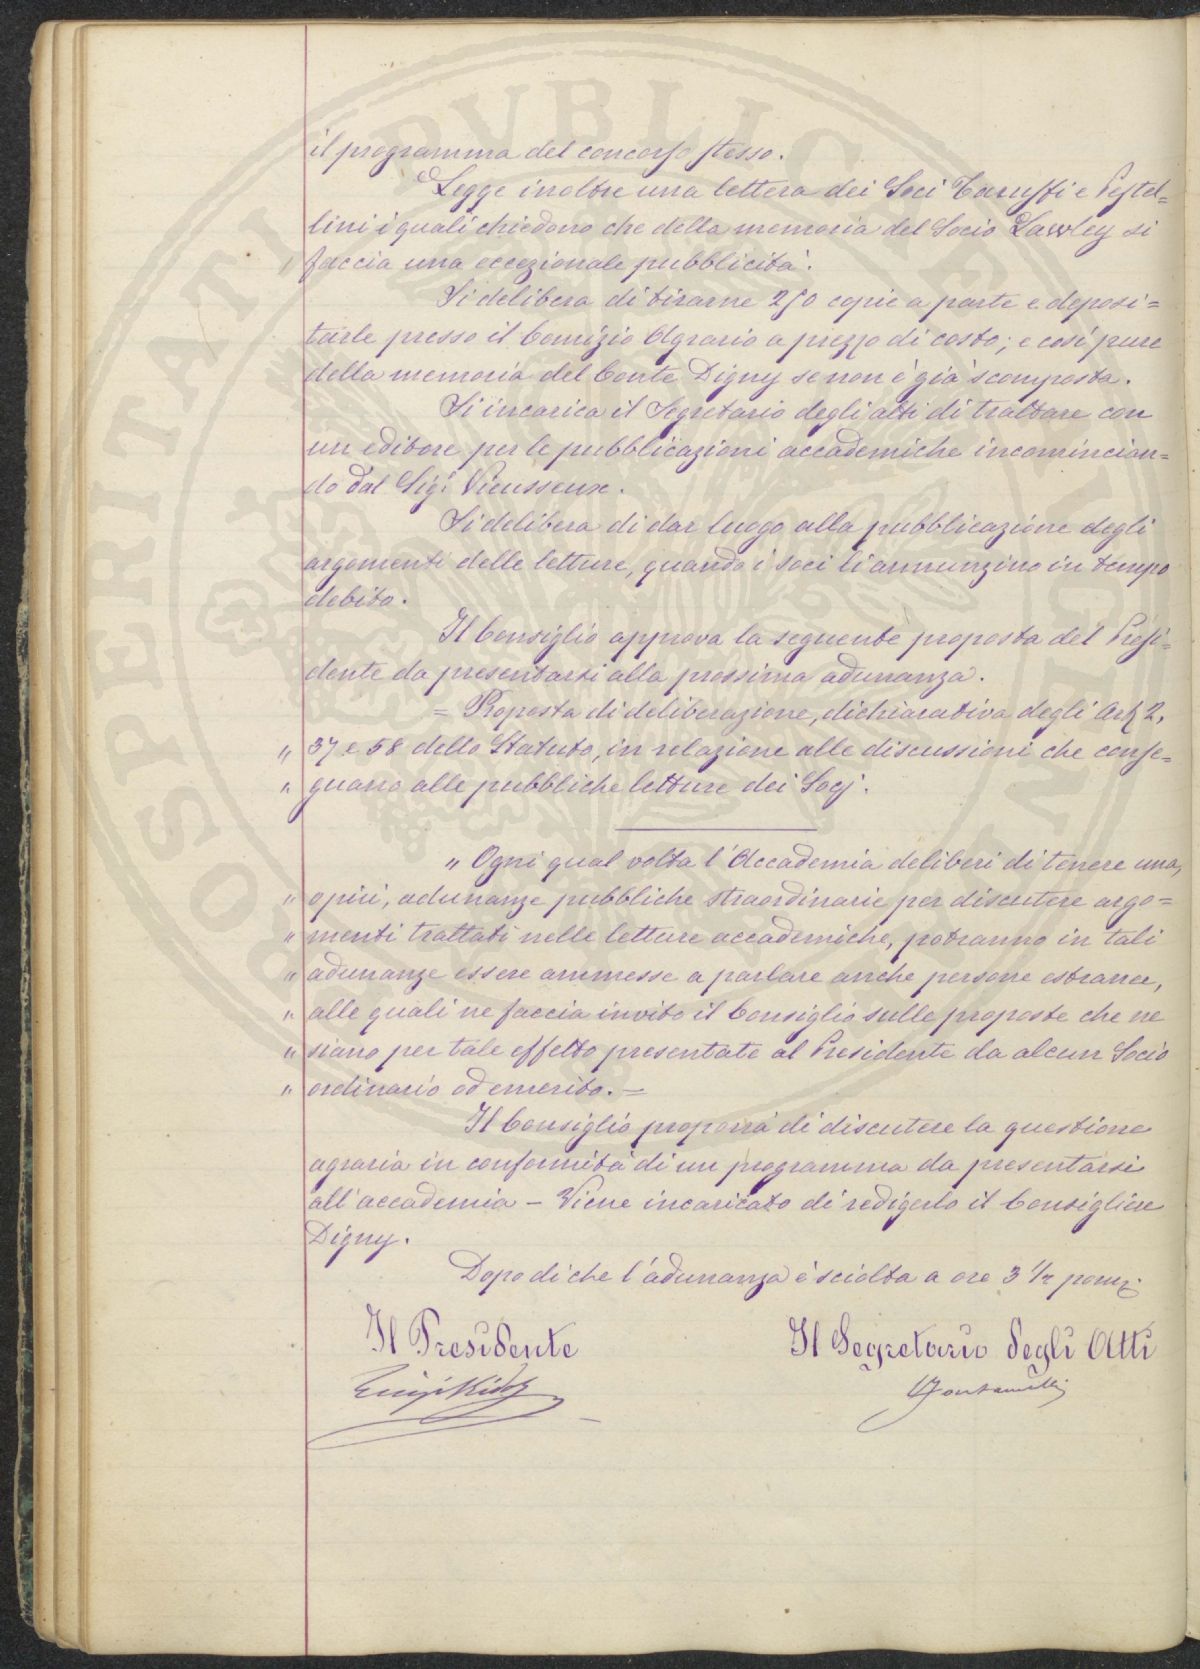 il programma del concorso stesso.
Legge inoltre una lettera dei Soci Taruffi e Pestel=
lini i quali chiedono che della memoria del Socio Lawley si
faccia una eccezionale pubblicità.
Si delibera di tirarne 250 copie a parte e deposi=
tarle presso il Comizio Agrario a prezzo di costo; e così pure
della memoria del Conte Digny se non è già scomposta.
Si incarica il Segretario degli atti di trattare con
un editore per le pubblicazioni accademiche incomincian=
do dal Sig.r Vieusseux.
Si delibera di dar luogo alla pubblicazione degli
argomenti delle letture, quando i soci li annunzino in tempo
debito.
Il Consiglio approva la seguente proposta del Presi=
dente da presentarsi alla prossima adunanza.
= Proposta di deliberazione, dichiarativa degli Art. 2,
" 37 e 58 dello Statuto, in relazione alle discussioni che conse=
" guano alle pubbliche letture dei Socj.
" Ogni qual volta l'Accademia deliberi di tenere una,
" o più, adunanze pubbliche straordinarie per discutere argo=
" menti trattati nelle letture accademiche, potranno in tali
" adunanze essere ammesse a parlare anche persone estranee,
" alle quali ne faccia invito il Consiglio sulle proposte che ne
" siano per tale effetto presentate al Presidente da alcun Socio
" ordinario od emerito. =
Il Consiglio proporrà di discutere la questione
agraria in conformità di un programma da presentarsi
all'accademia – Viene incaricato di redigerlo il Consigliere
Digny.
Dopo di che l'adunanza è sciolta a ore 3 1/2 pom.
Il Presidente
Il Segretario degli Atti
Luigi Ridolfi
SOPERITATI PVBLICAE